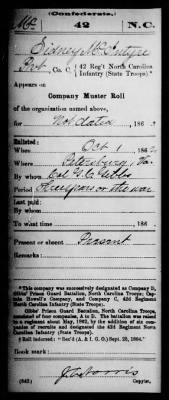 (Confederate.)
Mc 42 N.C.
Sidney McIntyre
Pvt, Co. C, 42 Reg't North Carolina
Infantry (State Troops).*
Appears on
Company Muster Roll
of the organization named above,
for Not dated, 186 .
Enlisted:
When Oct 1, 186
Where Petersburg, Va.
By whom Col G. C. Gibbs
Period Three years or the war
Last paid:
By whom
To what time , 186 .
Present or absent Present
Remarks:
*This company was successively designated as Company D,
Gibbs' Prison Guard Battalion, North Carolina Troops; Captain
Howell's Company, and Company C, 42d Regiment
North Carolina Infantry (State Troops).
Gibbs' Prison Guard Battalion, North Carolina Troops,
consisted of four companies, A to D. The battalion was raised
to a regiment about May, 1862, by the addition of six companies
of recruits and designated the 42d Regiment North Carolina
Infantry (State Troops).
Roll indorsed: "Rec'd (A. & I. G. O.) Sept. 23, 1864."
Book mark:
(642) Copyist.